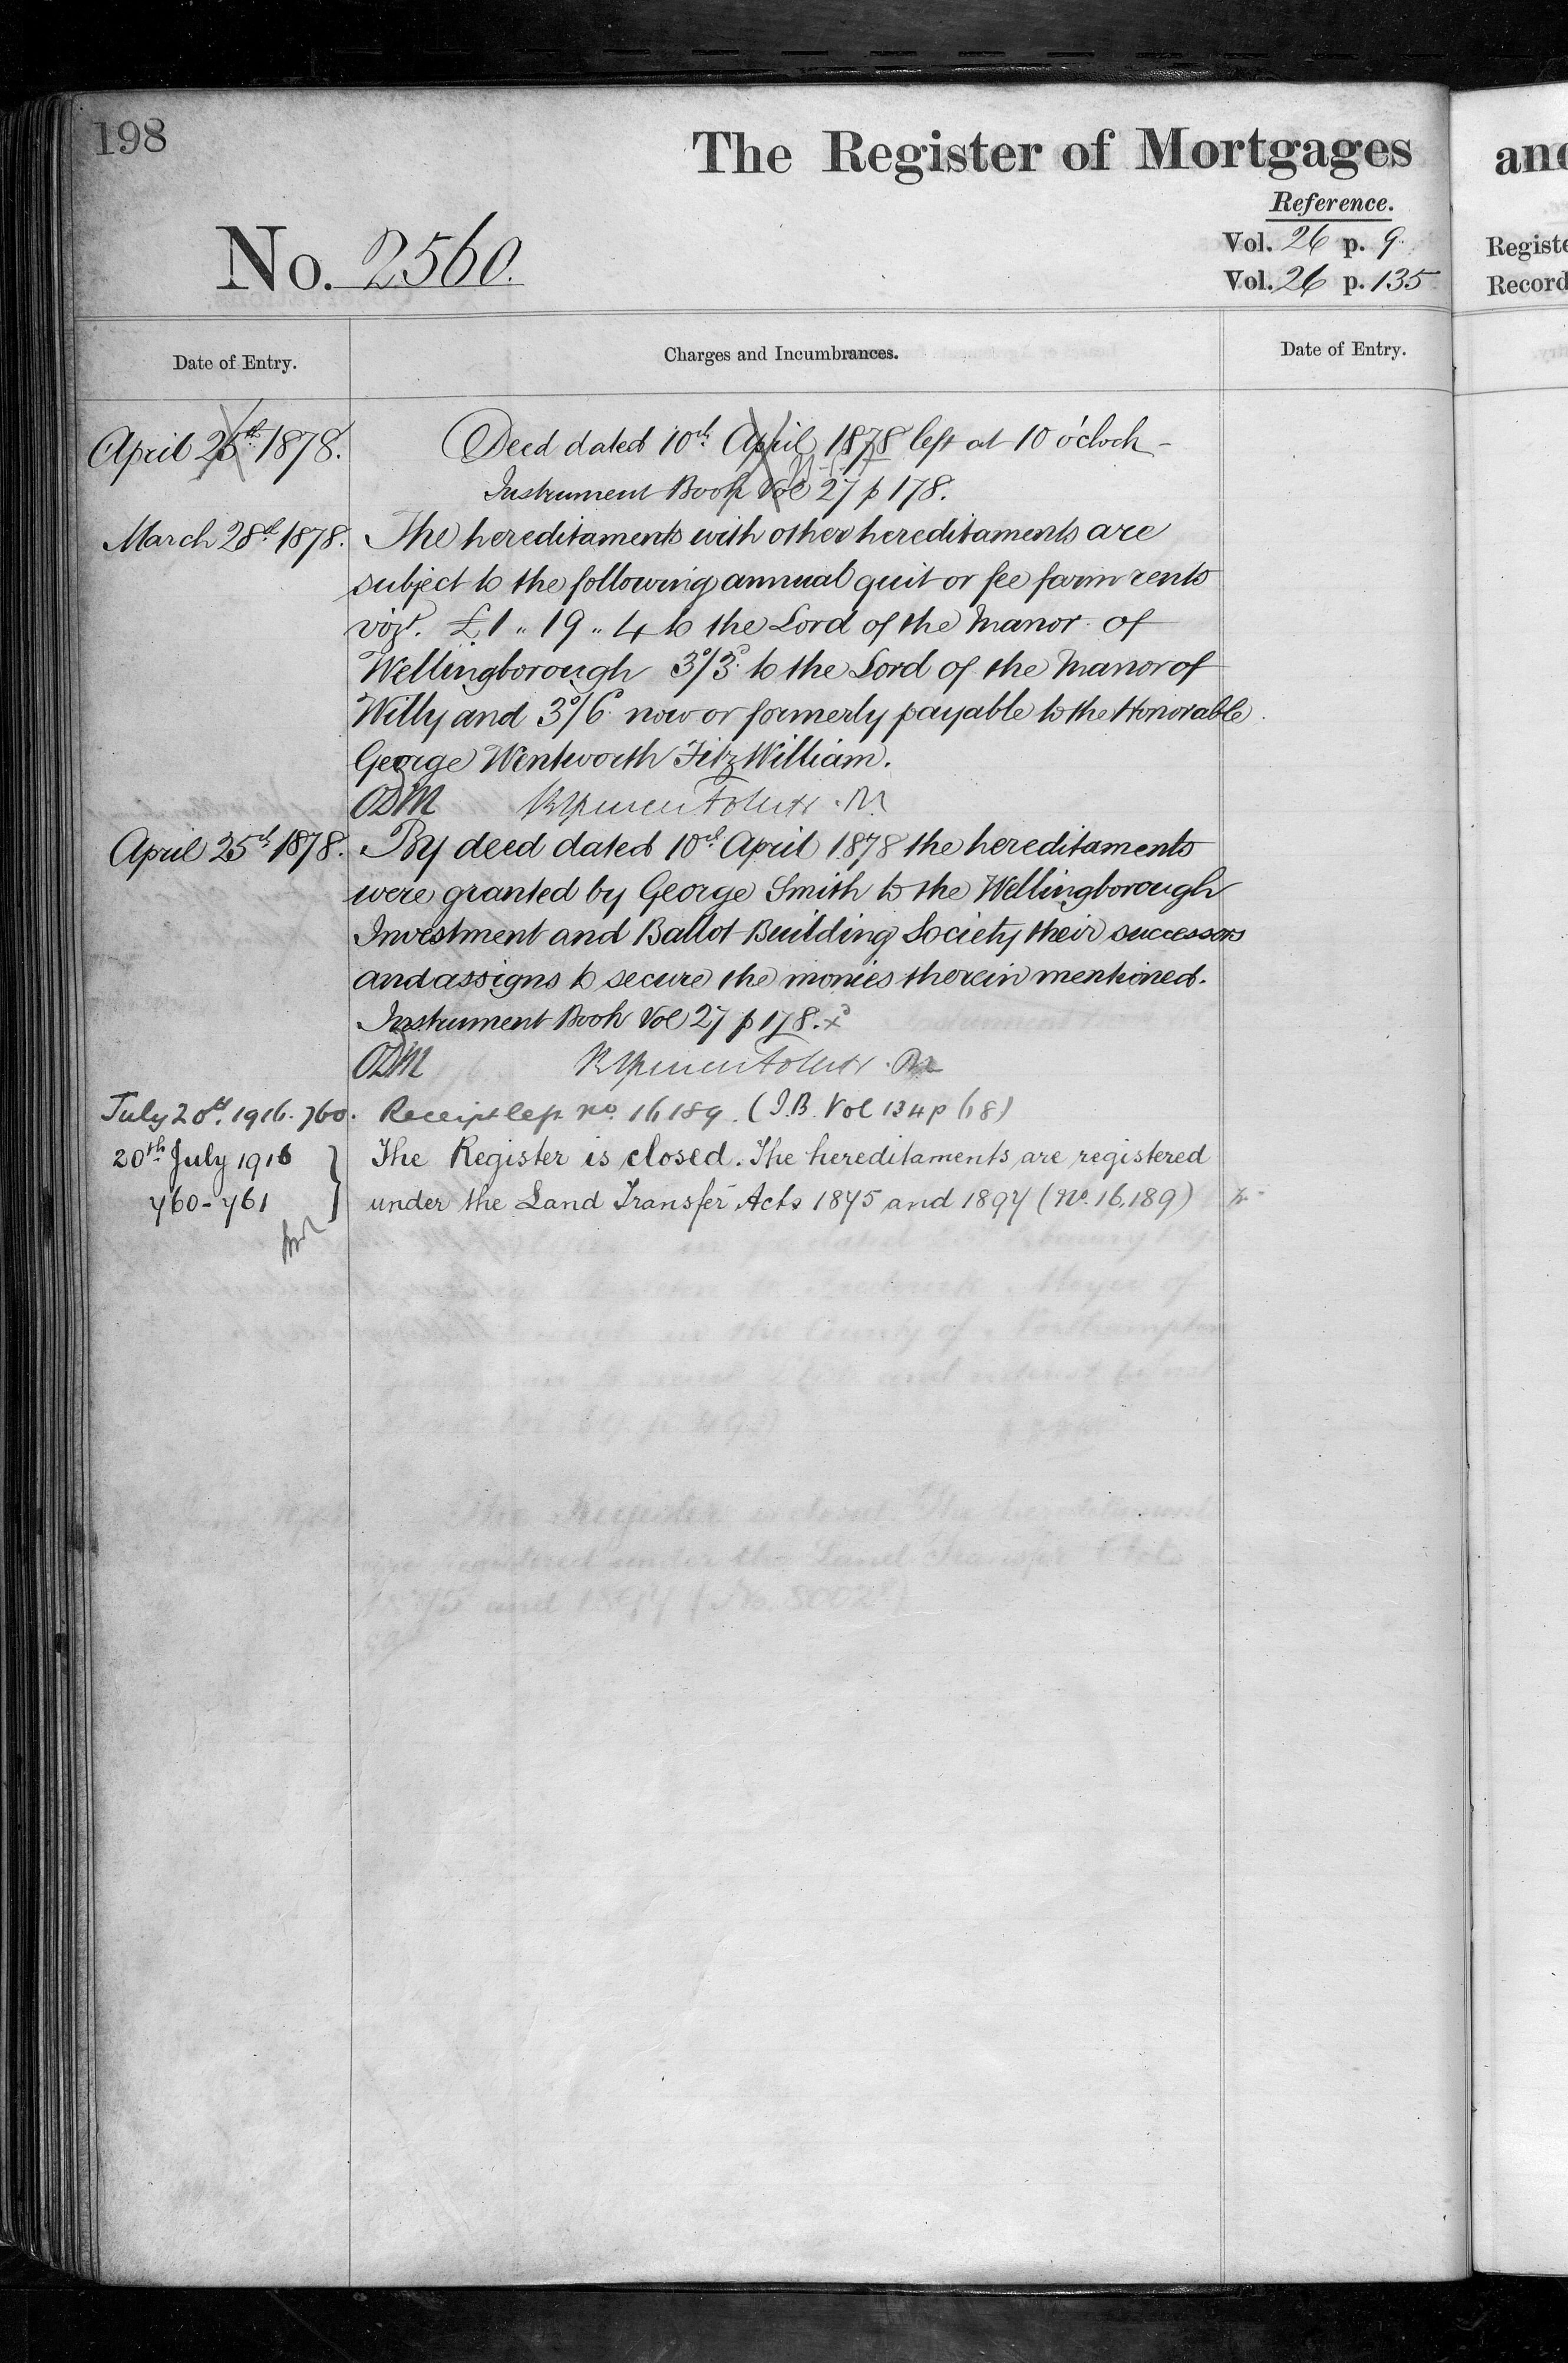 198
The Register of Mortgages
Reference.
No. 2560.
Vol. 26 p. 9.
Vol. 26 p. 135
Date of Entry.
Charges and Incumbrances.
Date of Entry.
April 25th 1878.
Deed dated 10th April 1878 left at 10 o'clock -
Instrument Book Vol 27 p 178.
March 28th 1878.
The hereditaments with other hereditaments are
subject to the following annual quit or fee farm rents
vizt. £1 „ 19 „ 4 to the Lord of the Manor of
Wellingborough 3s/3d to the Lord of the Manor of
Willy and 3s/6d now or formerly payable to the Honorable
George Wentworth FitzWilliam.
ODM
April 25th 1878.
By deed dated 10th April 1878 the hereditaments
were granted by George Smith to the Wellingborough
Investment and Ballot Building Society their successors
and assigns to secure the monies therein mentioned.
Instrument Book Vol 27 p 178. x
ODM
July 20th. 1916. 760.
Receipt left no. 16189. (I.B. Vol 134 p 68)
20th July 1916
760-761
The Register is closed. The hereditaments are registered
under the Land Transfer Acts 1875 and 1897 (No. 16,189)
and
Registe
Record